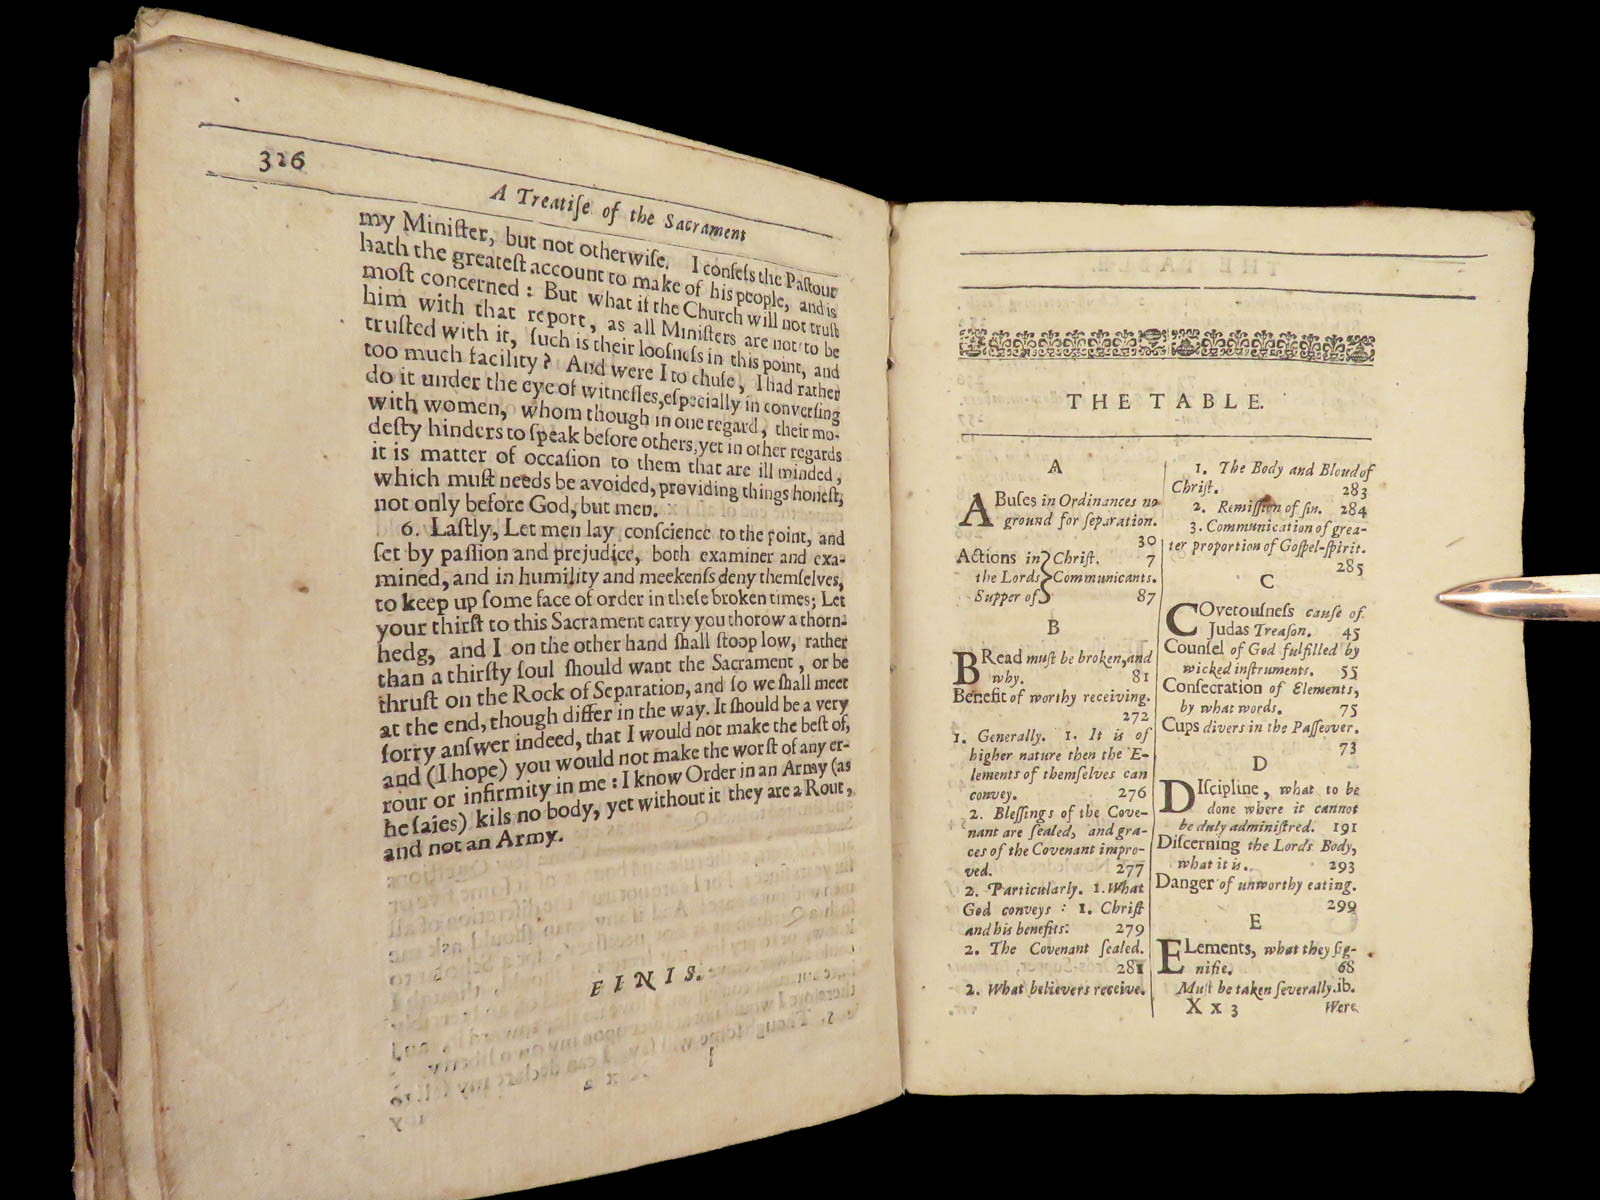 326
A Treatiſe of the Sacrament
my Miniſter, but not otherwiſe. I confeſs the Paſtour
hath the greateſt account to make of his people, and is
moſt concerned : But what if the Church will not truſt
him with that report, as all Miniſters are not to be
truſted with it, ſuch is their looſneſs in this point, and
too much facility? And were I to chuſe, I had rather
do it under the eye of witneſſes, eſpecially in converſing
with women, whom though in one regard, their mo-
deſty hinders to ſpeak before others, yet in other regards
it is matter of occaſion to them that are ill minded,
which muſt needs be avoided, providing things honeſt,
not only before God, but men.
6. Laſtly, Let men lay conſcience to the point, and
ſet by paſſion and prejudice, both examiner and exa-
mined, and in humility and meekenſs deny themſelves,
to keep up ſome face of order in theſe broken times; Let
your thirſt to this Sacrament carry you thorow a thorn-
hedg, and I on the other hand ſhall ſtoop low, rather
than a thirſty ſoul ſhould want the Sacrament, or be
thruſt on the Rock of Separation, and ſo we ſhall meet
at the end, though differ in the way. It ſhould be a very
ſorry anſwer indeed, that I would not make the beſt of,
and (I hope) you would not make the worſt of any er-
rour or infirmity in me : I know Order in an Army (as
he ſaies) kils no body, yet without it they are a Rout,
and not an Army.
FINIS.
THE TABLE.
A
ABuſes in Ordinances no
ground for ſeparation.
30
Actions in } Chriſt. 7
the Lords } Communicants.
Supper of } 87
B
BRead muſt be broken, and
why. 81
Benefit of worthy receiving.
272
1. Generally. 1. It is of
higher nature then the E-
lements of themſelves can
convey. 276
2. Bleſſings of the Cove-
nant are ſealed, and gra-
ces of the Covenant impro-
ved. 277
2. Particularly. 1. What
God conveys : 1. Chriſt
and his benefits. 279
2. The Covenant ſealed.
281
2. What believers receive.
1. The Body and Bloud of
Chriſt. 283
2. Remiſſion of ſin. 284
3. Communication of grea-
ter proportion of Goſpel-ſpirit.
285
C
COvetouſneſs cauſe of
Judas Treaſon. 45
Counſel of God fulfilled by
wicked inſtruments. 55
Conſecration of Elements,
by what words. 75
Cups divers in the Paſſeover.
73
D
DIſcipline, what to be
done where it cannot
be duly adminiſtred. 191
Diſcerning the Lords Body,
what it is. 293
Danger of unworthy eating.
299
E
ELements, what they ſig-
nifie. 68
Muſt be taken ſeverally. ib.
X x 3 Were